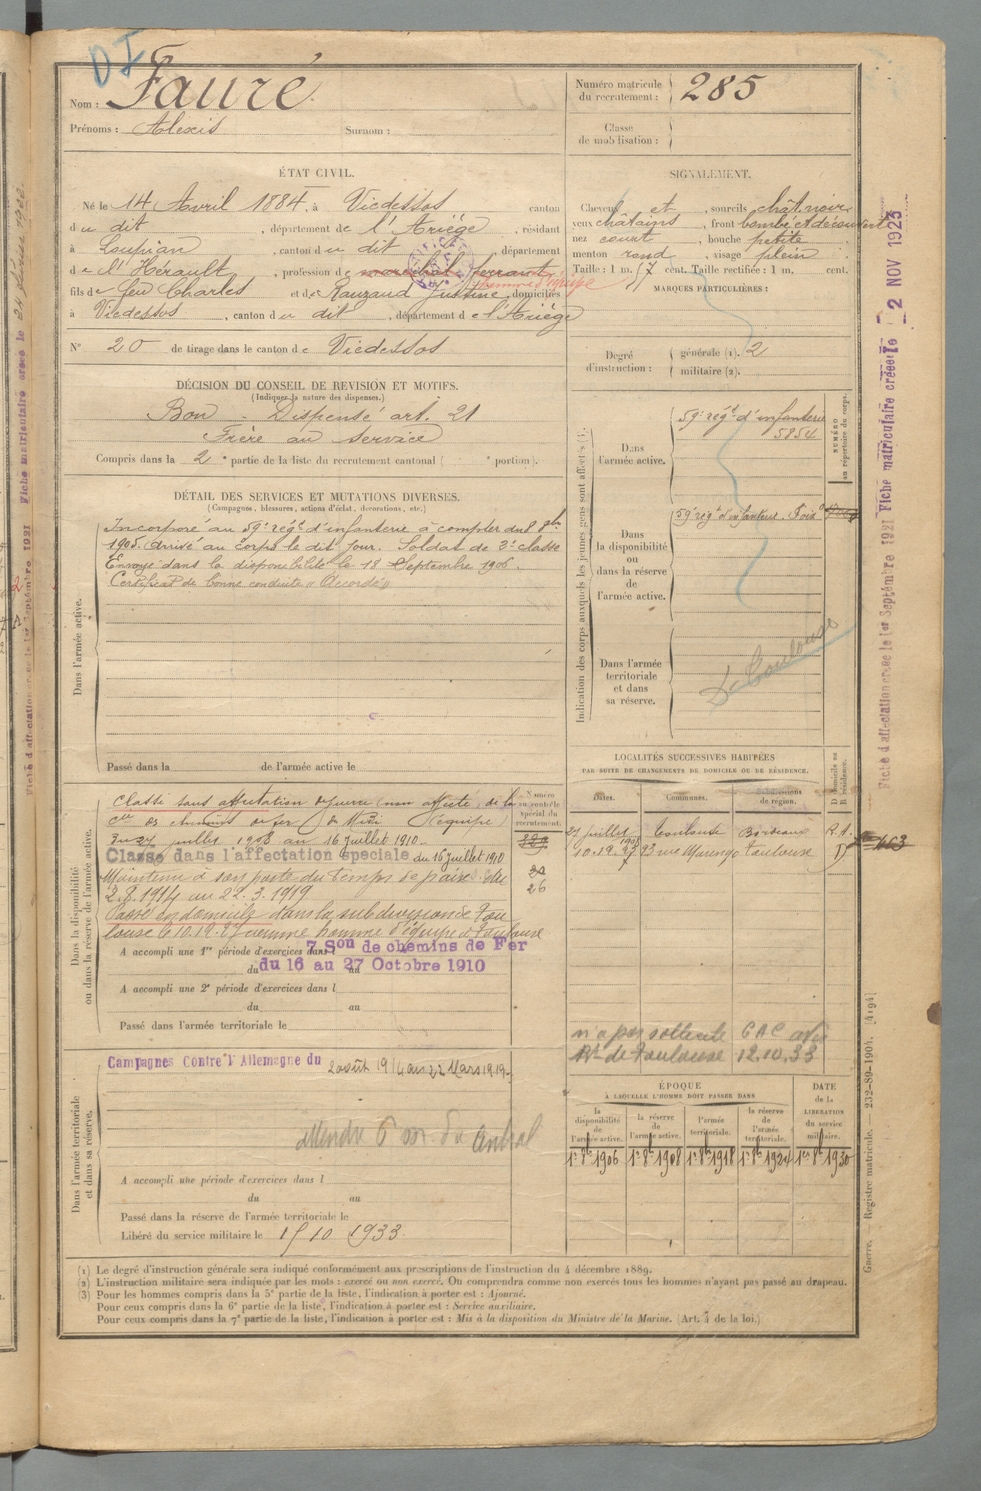 DI
Nom : Fauré
Numéro matricule du recrutement : 285
Prénoms : Alexis Surnom :
Classe de mobilisation :
ÉTAT CIVIL.
Né le 14 Avril 1884, à Vicdessos canton
du dit, département de l'Ariége, résidant
à Loupian, canton du dit, département
de l'Hérault, profession de maréchal ferrant homme d'équipe
fils de feu Charles et de Rauzaud Justine, domiciliés
à Vicdessos, canton du dit, département de l'Ariége
N° 20 de tirage dans le canton de Vicdessos
SIGNALEMENT.
Cheveux et, sourcils chât. noirs
yeux châtains, front bombé et découvert
nez court, bouche petite
menton rond, visage plein
Taille : 1 m. 57 cent. Taille rectifiée : 1 m. cent.
MARQUES PARTICULIÈRES :
Degré d'instruction : générale (1). 2
militaire (2).
DÉCISION DU CONSEIL DE REVISION ET MOTIFS.
(Indiquer la nature des dispenses.)
Bon - Dispensé art. 21
Frère au service
Compris dans la 2e partie de la liste du recrutement cantonal ( e portion).
DÉTAIL DES SERVICES ET MUTATIONS DIVERSES.
(Campagnes, blessures, actions d'éclat, décorations, etc.)
Dans l'armée active.
Incorporé au 59e régt d'infanterie à compter du 8 8bre
1905. Arrivé au corps le dit jour. Soldat de 2e classe
Envoyé dans la disponibilité le 18 Septembre 1906.
Certificat de bonne conduite "Accordé"
Passé dans la de l'armée active le
Indication des corps auxquels les jeunes gens sont affectés (3).
Dans l'armée active.
59e régt d'infanterie
5854
NUMÉRO au répertoire du corps.
Dans la disponibilité ou dans la réserve de l'armée active.
59e régt d'infanterie. Foix
Dans l'armée territoriale et dans sa réserve.
Toulouse
Dans la disponibilité ou dans la réserve de l'armée active.
Numéro au contrôle spécial du recrutement.
Classé sans affectation de guerre (non affecté) de la
Cie des chemins de fer du Midi (équipe)
du 27 juillet 1908 au 16 juillet 1910.
Classé dans l'affectation spéciale du 16 juillet 1910
Maintenu à son poste du temps de paix du
2.8.1914 au 22.3.1919
26
Passé en domicile dans la subdivision de Tou
louse le 10.12.27 comme homme d'équipe à Toulouse
A accompli une 1re période d'exercices dans l 7 Son de chemins de Fer
du du 16 au 27 Octobre 1910
A accompli une 2e période d'exercices dans l
du au
Passé dans l'armée territoriale le
LOCALITÉS SUCCESSIVES HABITÉES
PAR SUITE DE CHANGEMENTS DE DOMICILE OU DE RÉSIDENCE.
Dates. Communes. Subdivisions de région. D domicile ou R résidence.
27 juillet 1908 Bordeaux R.
10.12.27 93 rue Marengo Toulouse D
463
n'a pas sollicité CAC
de Toulouse 12.10.33
Dans l'armée territoriale et dans sa réserve.
Campagnes Contre l'Allemagne du 2 août 1914 au 22 Mars 1919
A accompli une période d'exercices dans l
du au
Passé dans la réserve de l'armée territoriale le
Libéré du service militaire le 15 10 1933
ÉPOQUE
À LAQUELLE L'HOMME DOIT PASSER DANS
DATE de la LIBÉRATION du service militaire.
la disponibilité de l'armée active. la réserve de l'armée active. l'armée territoriale. la réserve de l'armée territoriale.
1er 8bre 1906 1er 8bre 1908 1er 8bre 1918 1er 8bre 1924 1er 8bre 1930
(1) Le degré d'instruction générale sera indiqué conformément aux prescriptions de l'instruction du 4 décembre 1889.
(2) L'instruction militaire sera indiquée par les mots : exercé ou non exercé. On comprendra comme non exercés tous les hommes n'ayant pas passé au drapeau.
(3) Pour les hommes compris dans la 5e partie de la liste, l'indication à porter est : Ajourné.
Pour ceux compris dans la 6e partie de la liste, l'indication à porter est : Service auxiliaire.
Pour ceux compris dans la 7e partie de la liste, l'indication à porter est : Mis à la disposition du Ministre de la Marine. (Art. 4 de la loi.)
Fiche d'affectation créée le 1er Septembre 1921 Fiche matriculaire créée le 2 NOV 1923
Guerre. — Registre matricule. — 232-89-1904. [4194]
Fiche d'affectation créée le 1er Septembre 1921 Fiche matriculaire créée le